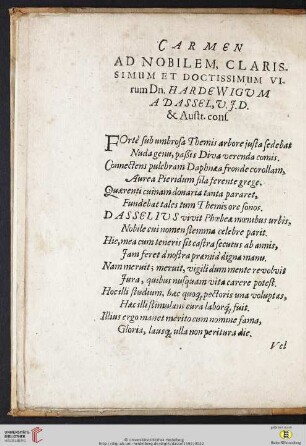 CARMEN
AD NOBILEM, CLARIS-
SIMUM ET DOCTISSIMUM VI-
rum Dn. HARDEWIGUM
A DASSEL, U.J.D.
& Austr. cons.
FOrtè sub umbrosa Themis arbore justa sedebat
Nuda genu, passis Diva verenda comis,
Connectens pulchram Daphnæa fronde corollam,
Aurea Pieridum fila ferente grege.
Quærenti cuinam donaria tanta pararet,
Fundebat tales tum Themis ore sonos.
DASSELIUS vivit Phœbeæ mœnibus urbis,
Nobile cui nomen stemma celebre parit.
Hic, mea cum teneris sit castra secutus ab annis,
Jam feret à nostra præmia digna manu.
Nam meruit; meruit, vigili dum mente revolvit
Jura, quibus nusquam vita carere potest.
Hoc illi studium, hæc quoq; pectoris una voluptas,
Hac illi stimulans cura laborq; fuit.
Illius ergo manet meritò cum nomine fama,
Gloria, lausq; ulla non peritura die.
Vel
UNIVERSITÄTS-
BIBLIOTHEK
HEIDELBERG
© Universitätsbibliothek Heidelberg